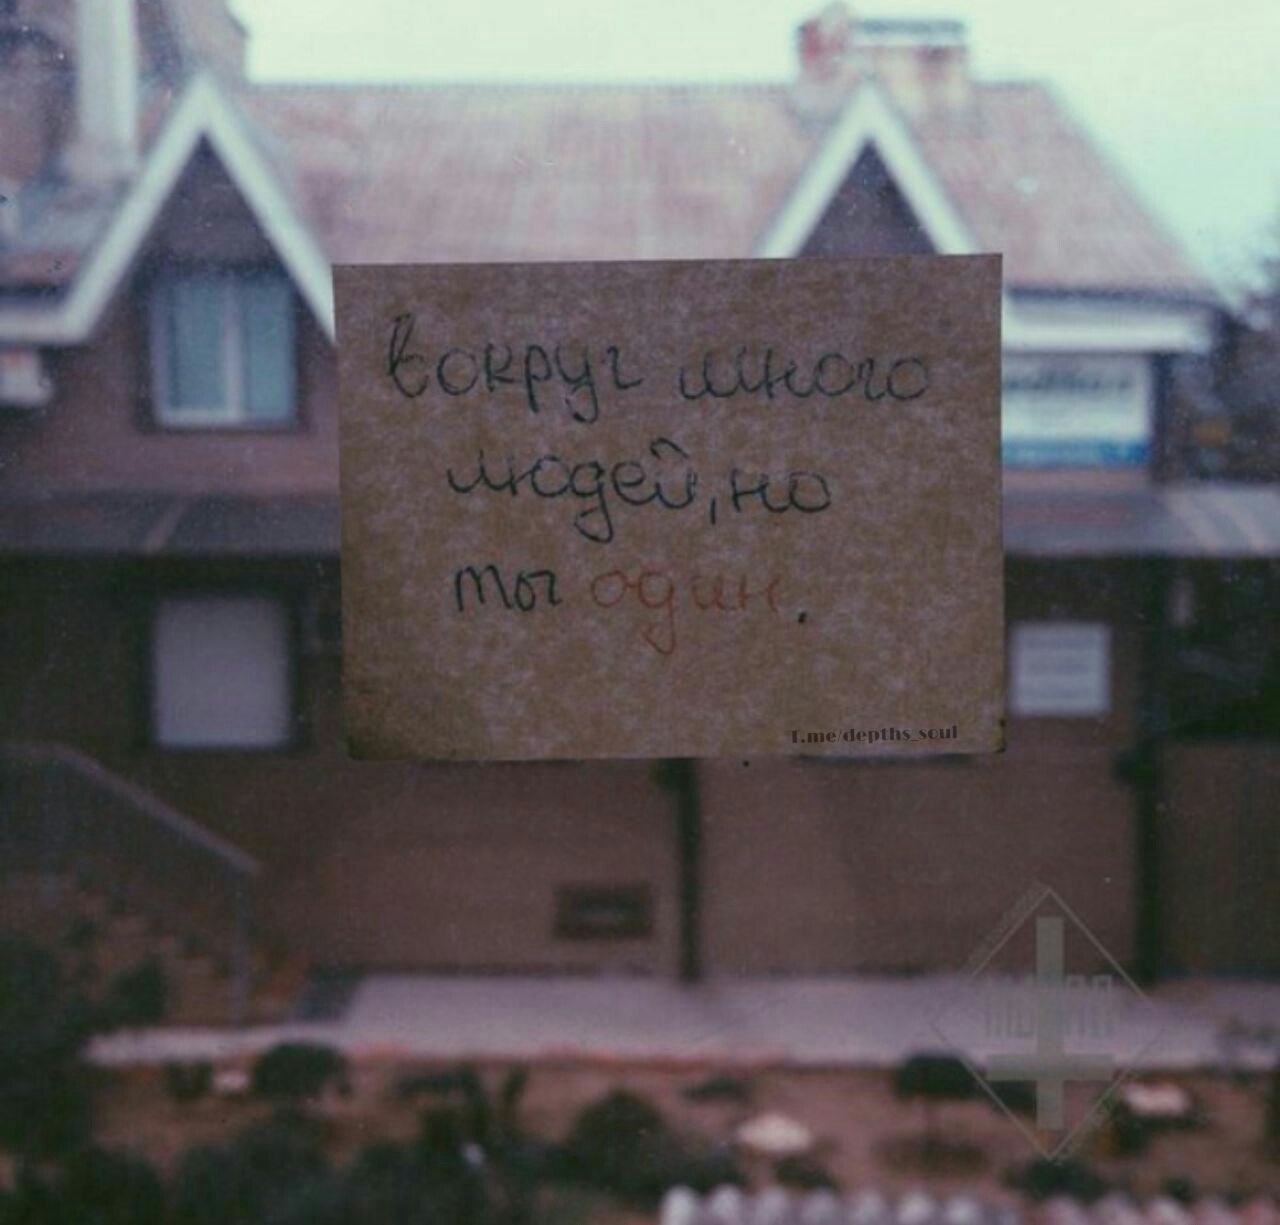 вокруг много
людей, но
ты один.
T.me/depths_soul